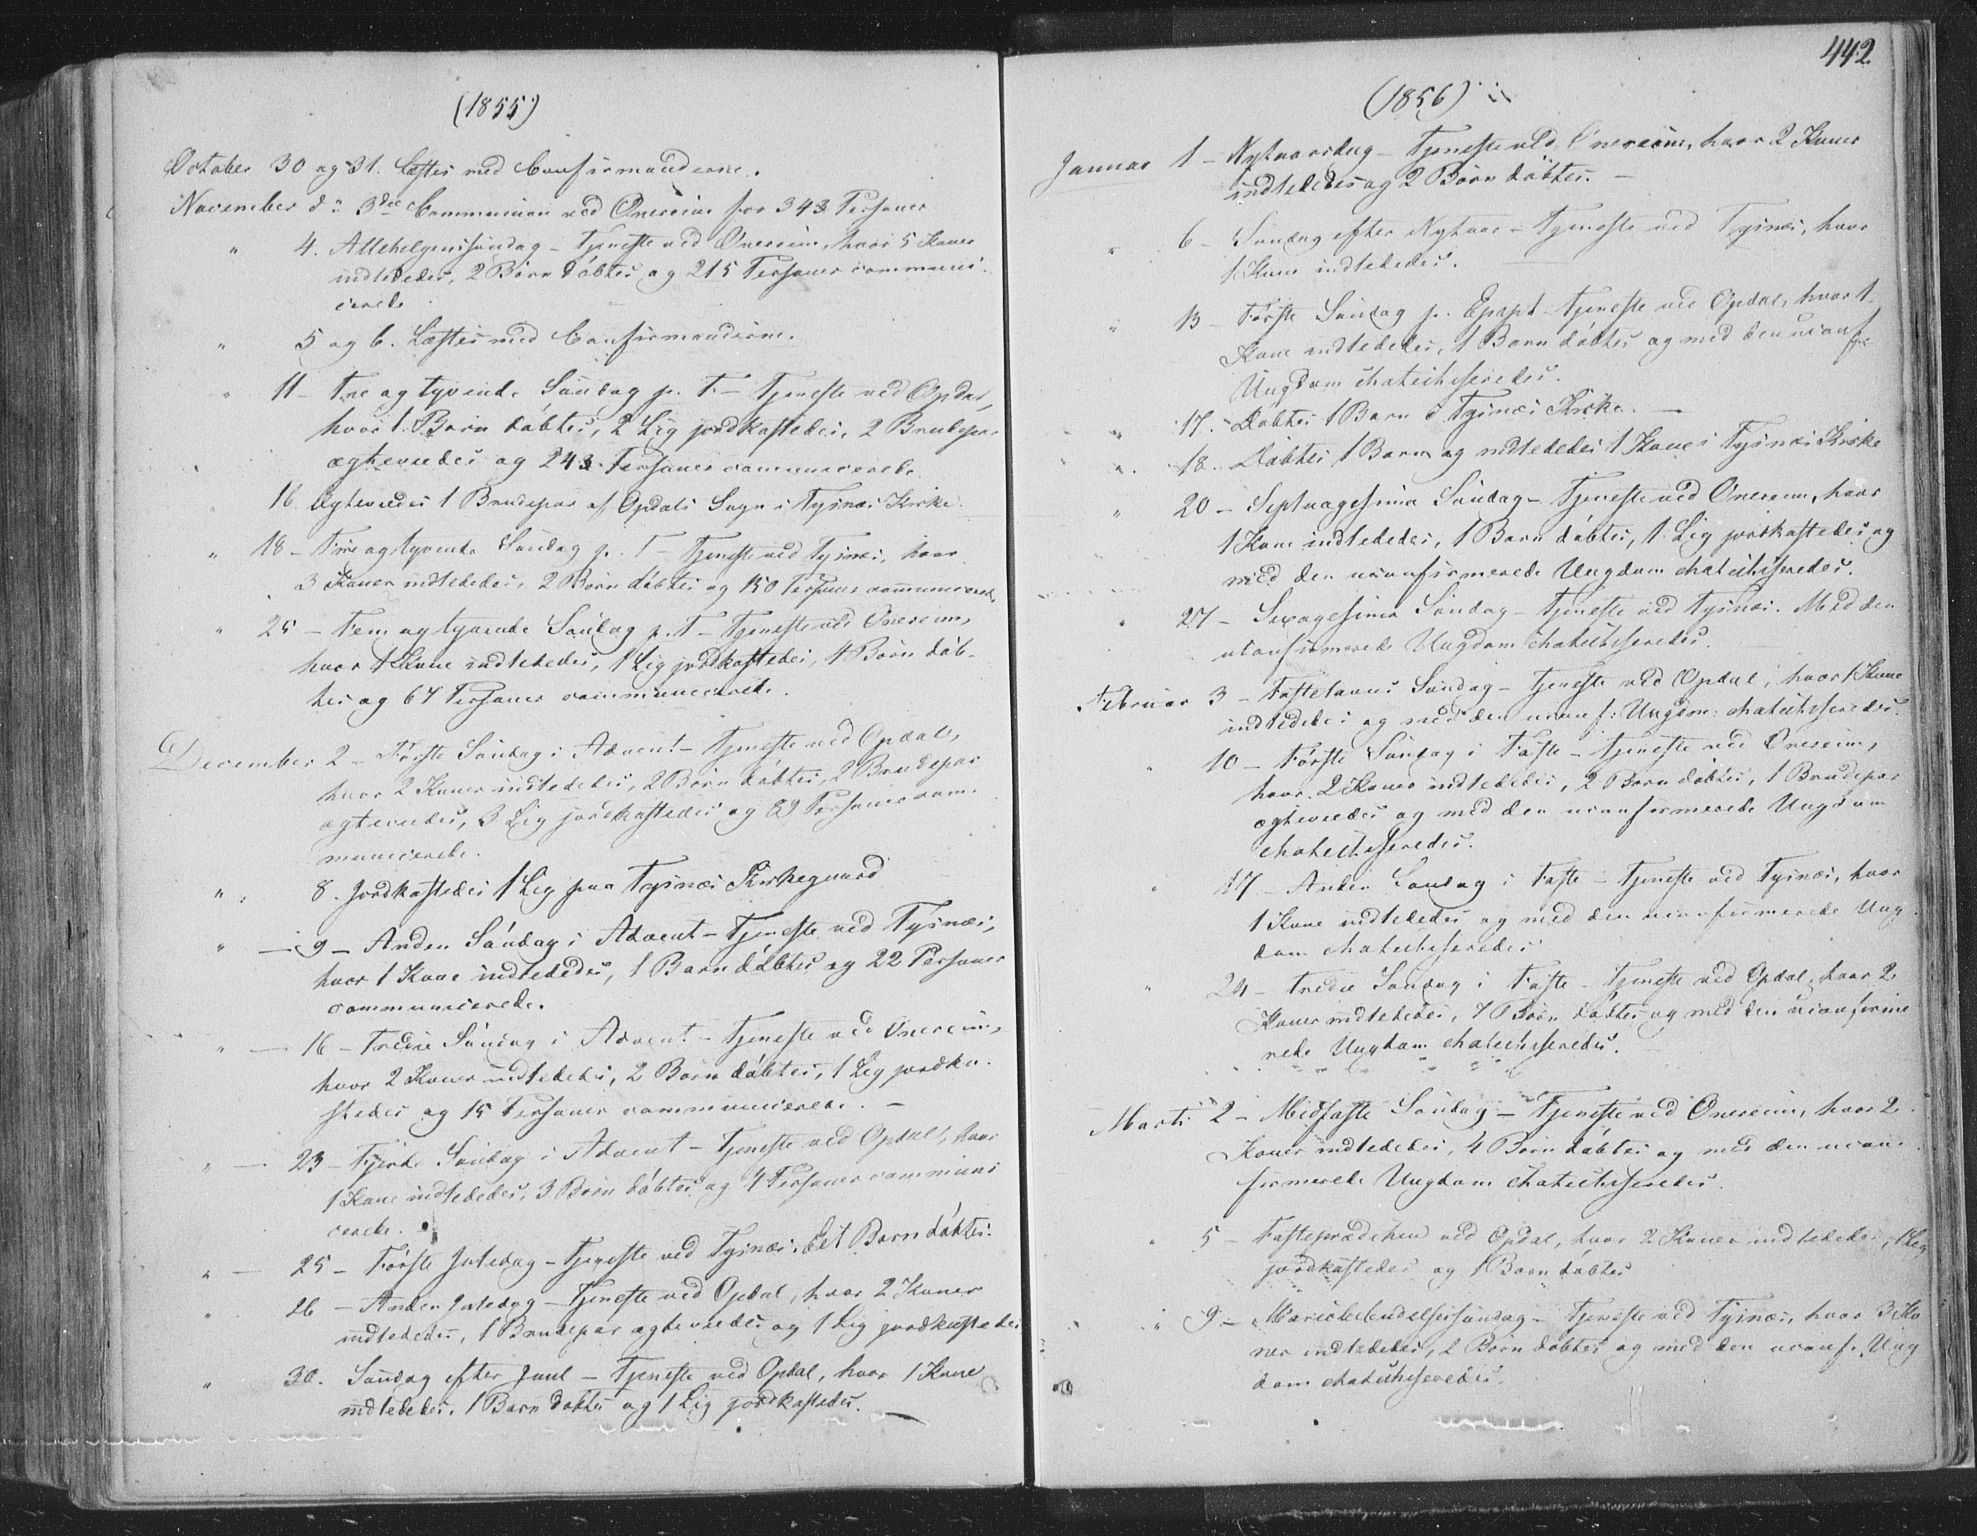 (1855)
October 30 og 31. Læstes med Confirmanderne.
November d: 3die Communion ved Onereim for 343 Personer
" 4. Allehelgenssøndag – Tjeneste ved Onereim, hvor 5 Koner
indlededes, 2 Børn døbtes og 215 Personer communi-
cerede
" 5 og 6. Læstes med Confirmanderne.
" 11 – Tre og tyvende Søndag p. T – Tjeneste ved Opdal,
hvor 1 Barn døbtes, 2 Lig jordkastedes, 2 Brudepar
ægteviedes og 243 Personer communicerede.
" 16. Ægteviedes 1 Brudepar af Opdals Sogn i Tysnæs Kirke.
" 18 – Fire og tyvende Søndag p. T – Tjeneste ved Tysnæs, hvor
3 Koner indlededes, 2 Børn døbtes og 150 Personer communicerede.
" 25 – Fem og tyvende Søndag p. T – Tjeneste ved Onereim,
hvor 1 Kone indlededes, 1 Lig jordkastedes, 4 Børn døb-
tes og 67 Personer communicerede.
December 2 – Første Søndag i Advent – Tjeneste ved Opdal,
hvor 2 Koner indlededes, 2 Børn døbtes, 2 Brudepar
ægteviedes, 3 Lig jordkastedes og 89 Personer com-
municerede.
" 8. Jordkastedes 1 Lig paa Tysnæs Kirkegaard
" 9 – Anden Søndag i Advent – Tjeneste ved Tysnæs,
hvor 1 Kone indlededes, 1 Barn døbtes og 22 Personer
communicerede.
" 16 – Tredie Søndag i Advent – Tjeneste ved Onereim,
hvor 2 Koner indlededes, 2 Børn døbtes, 1 Lig jordka-
stedes og 15 Personer communicerede. –
" 23 – Fjerde Søndag i Advent – Tjeneste ved Opdal, hvor
1 Kone indlededes, 3 Børn døbtes og 4 Personer communi
cerede.
" 25 – Første Juledag – Tjeneste ved Tysnæs. Et Barn døbtes.
" 26 – Anden Juledag – Tjeneste ved Opdal, hvor 2 Koner
indlededes, 1 Brudepar ægteviedes og 1 Lig jordkastedes
" 30. Søndag efter Juul – Tjeneste ved Opdal, hvor 1 Kone
indlededes, 1 Barn døbtes og 1 Lig jordkastedes. –
442
(1856)
Januar 1 – Nytaarsdag – Tjeneste ved Onereim, hvor 2 Koner
indlededes og 2 Børn døbtes. –
" 6 – Søndag efter Nytaar – Tjeneste ved Tysnæs, hvor
1 Kone indlededes.
" 13 – Første Søndag p. Epiph – Tjeneste ved Opdal, hvor 1
Kone indlededes, 1 Barn døbtes og med den uconf.
Ungdom chatechiseredes.
" 17. Døbtes 1 Barn i Tysnæs Kirke. –
" 18. Døbtes 1 Barn og indlededes 1 Kone i Tysnæs Kirke
" 20 – Septuagesima Søndag – Tjeneste ved Onereim, hvor
1 Kone indlededes, 1 Barn døbtes, 1 Lig jordkastedes og
med den uconfirmerede Ungdom chatechiseredes.
" 27 – Sexagesima Søndag – Tjeneste ved Tysnæs. Med den
uconfirmerede Ungdom chatechiseredes.
Februar 3 – Fastelavns Søndag – Tjeneste ved Opdal, hvor 1 Kone
indlededes og med den uconf: Ungdom chatechiseredes.
" 10 – Første Søndag i Faste – Tjeneste ved Onereim,
hvor 2 Koner indlededes, 2 Børn døbtes, 1 Brudepar
ægteviedes og med den uconfirmerede Ungdom
chatechiseredes.
" 17 – Anden Søndag i Faste – Tjeneste ved Tysnæs, hvor
1 Kone indlededes og med den uconfirmerede Ung
dom chatechiseredes
" 24 – Tredie Søndag i Faste – Tjeneste ved Opdal, hvor 2
Koner indlededes, 7 Børn døbtes og med den uconfirme
rede Ungdom chatechiseredes.
Marts 2 – Midfaste Søndag – Tjeneste ved Onereim, hvor 2
Koner indlededes, 4 Børn døbtes og med den ucon-
firmerede Ungdom chatechiseredes.
" 5 – Fasteprædiken ved Opdal, hvor 2 Koner indlededes, 1 Lig
jordkastedes og 1 Barn døbtes
" 9 – Mariæbebudelsessøndag – Tjeneste ved Tysnæs, hvor 3 Ko
ner indlededes, 2 Børn døbtes og med den uconf. Ung
dom chatechiseredes.